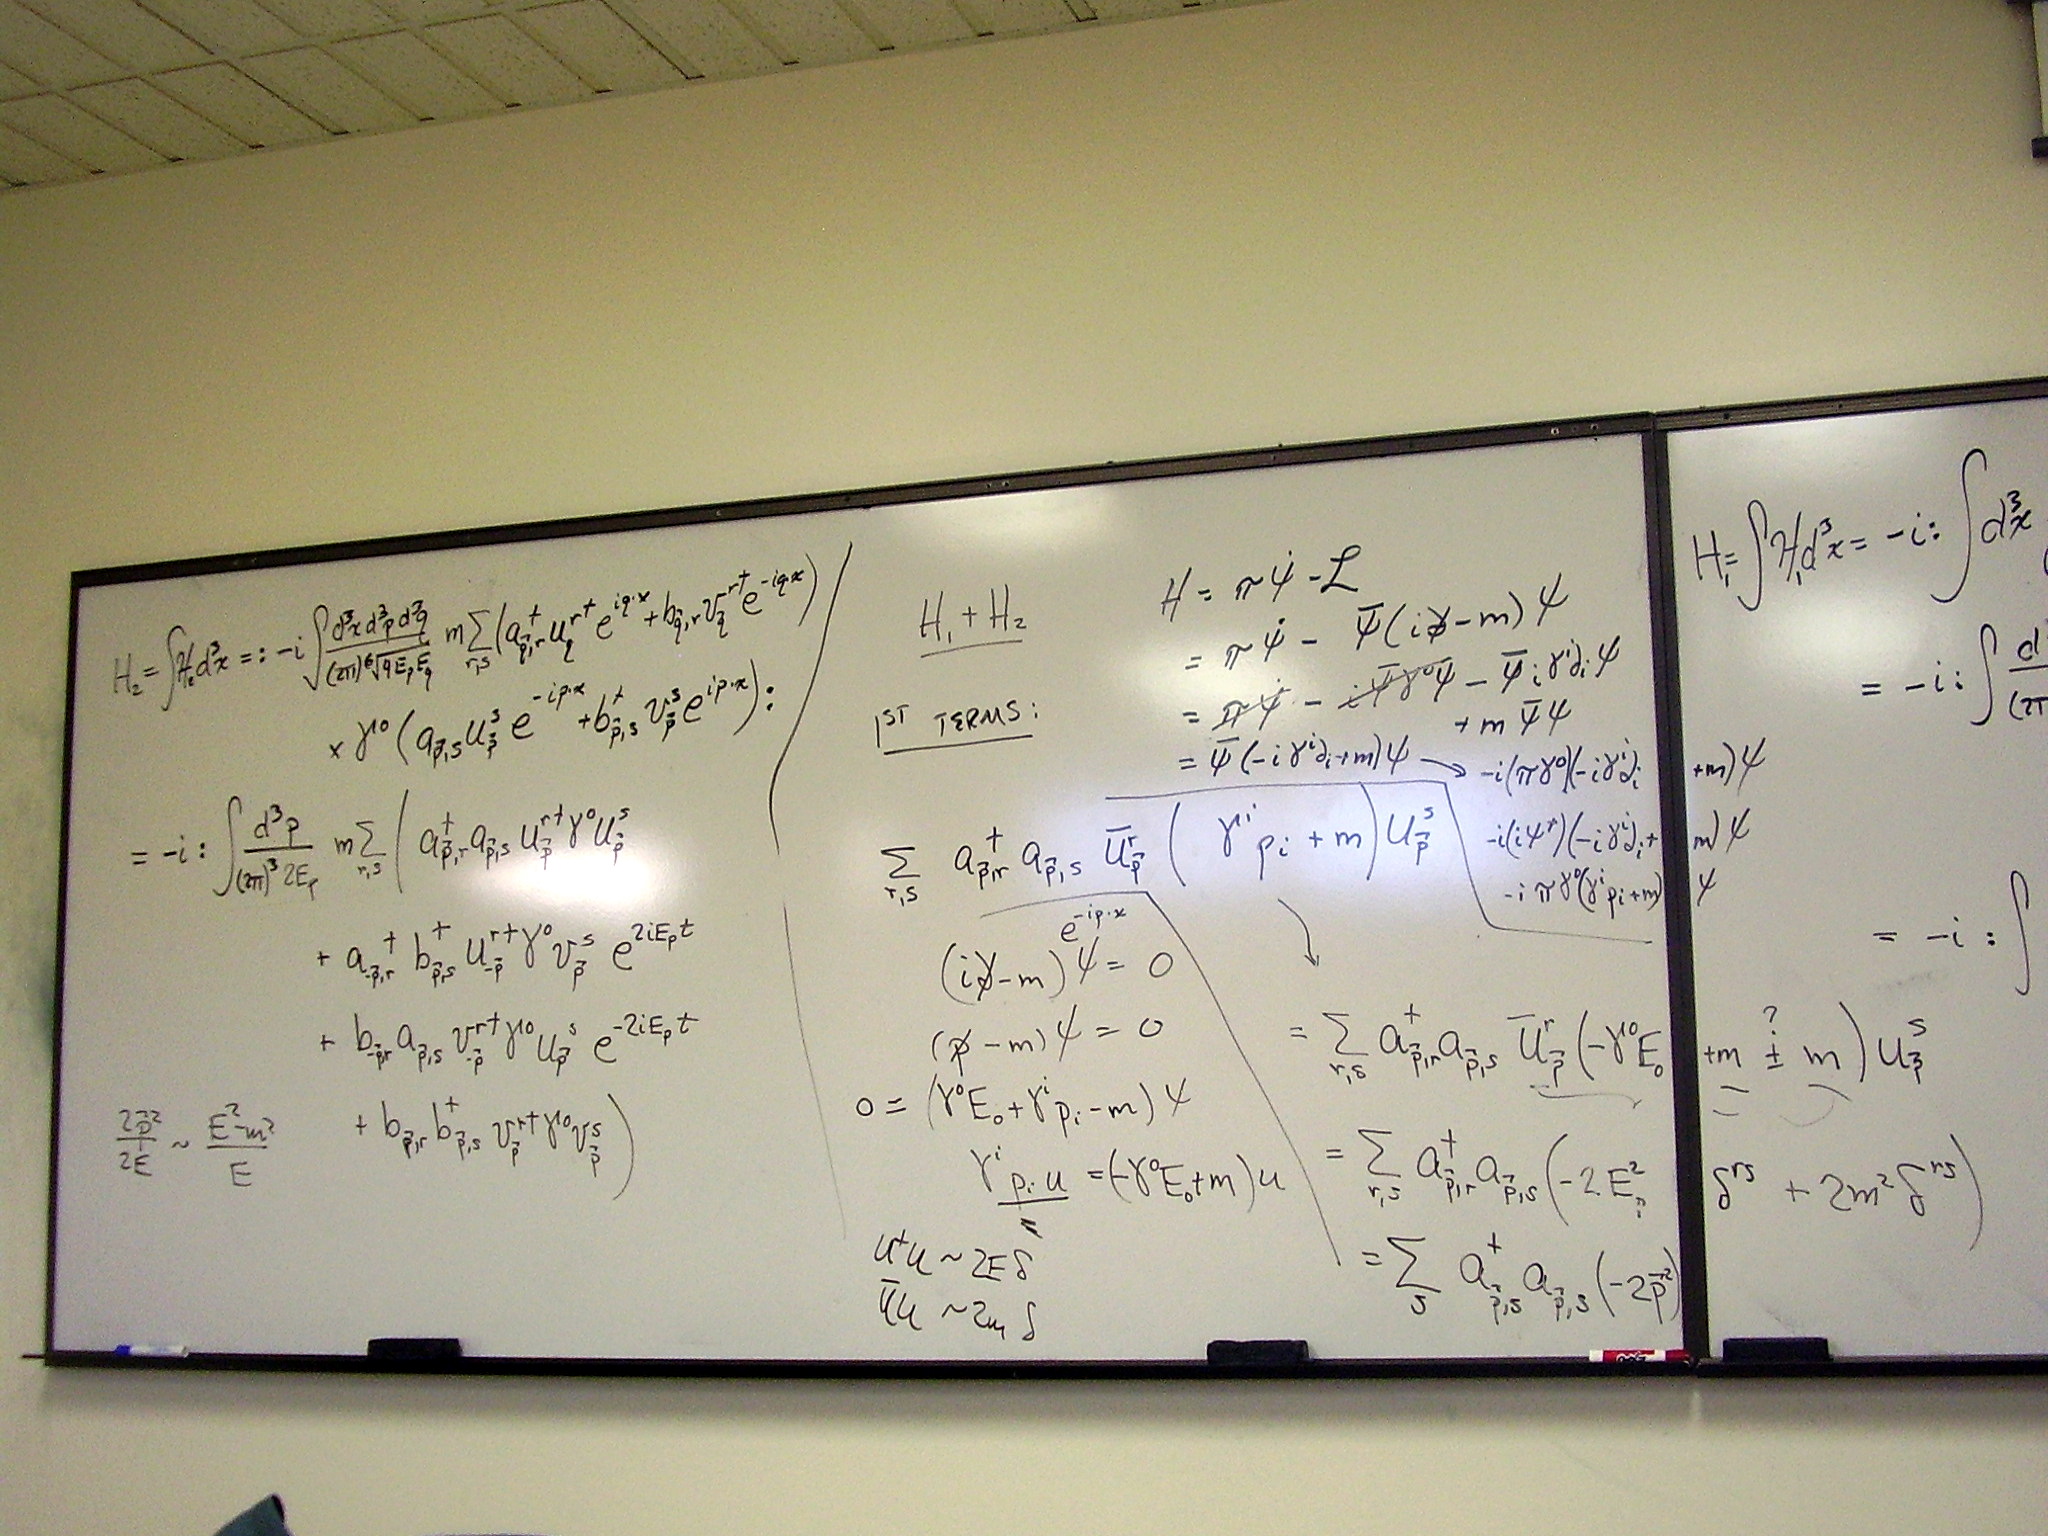 H₂ = ∫ℋ₂d³x = : -i ∫ d³x d³p d³q / (2π)⁶√4E_pE_q m Σ_{r,s} (a†_{q⃗,r} u_q^{r†} e^{iq·x} + b_{q⃗,r} v_{q⃗}^{r†} e^{-iq·x})
× γ⁰ (a_{p⃗,s} u^s_{p⃗} e^{-ip·x} + b†_{p⃗,s} v^s_{p⃗} e^{ip·x}) :
= -i : ∫ d³p / (2π)³ 2E_p m Σ_{r,s} ( a†_{p⃗,r} a_{p⃗,s} u_{p⃗}^{r†} γ⁰ u^s_{p⃗}
+ a†_{-p⃗,r} b†_{p⃗,s} u_{-p⃗}^{r†} γ⁰ v^s_{p⃗} e^{2iE_pt}
+ b_{-p⃗,r} a_{p⃗,s} v_{-p⃗}^{r†} γ⁰ u^s_{p⃗} e^{-2iE_pt}
+ b_{p⃗,r} b†_{p⃗,s} v_{p⃗}^{r†} γ⁰ v^s_{p⃗} )
2p⃗²/2E ~ E²-m²/E
H₁ + H₂
1ST TERMS:
H = πψ̇ - ℒ
= πψ̇ - ψ̄(i∂̸ - m)ψ
= πψ̇ - iψ̄γ⁰ψ̇ - ψ̄iγⁱ∂ᵢψ
+ mψ̄ψ
= ψ̄(-iγⁱ∂ᵢ+m)ψ → -i(πγ⁰)(-iγⁱ∂ᵢ +m)ψ
-i(iψ†)(-iγⁱ∂ᵢ + m)ψ
-iπγ⁰(γⁱpᵢ+m) ψ
Σ_{r,s} a†_{p⃗,r} a_{p⃗,s} ū^r_{p⃗} ( γⁱpᵢ + m ) u^s_{p⃗}
e^{-ip·x}
(i∂̸ - m)ψ = 0
(p̸ - m)ψ = 0
0 = (γ⁰E₀ + γⁱpᵢ - m)ψ
γⁱpᵢu = (-γ⁰E₀+m)u
u†u ~ 2Eδ
ūu ~ 2mδ
= Σ_{r,s} a†_{p⃗,r} a_{p⃗,s} ū^r_{p⃗} (-γ⁰E₀ + m ?± m) u^s_{p⃗}
= Σ_{r,s} a†_{p⃗,r} a_{p⃗,s} (-2E²_{p⃗} δ^{rs} + 2m²δ^{rs})
= Σ_s a†_{p⃗,s} a_{p⃗,s} (-2p⃗²)
H₁ = ∫ℋ₁d³x = -i : ∫ d³x
= -i : ∫
= -i : ∫